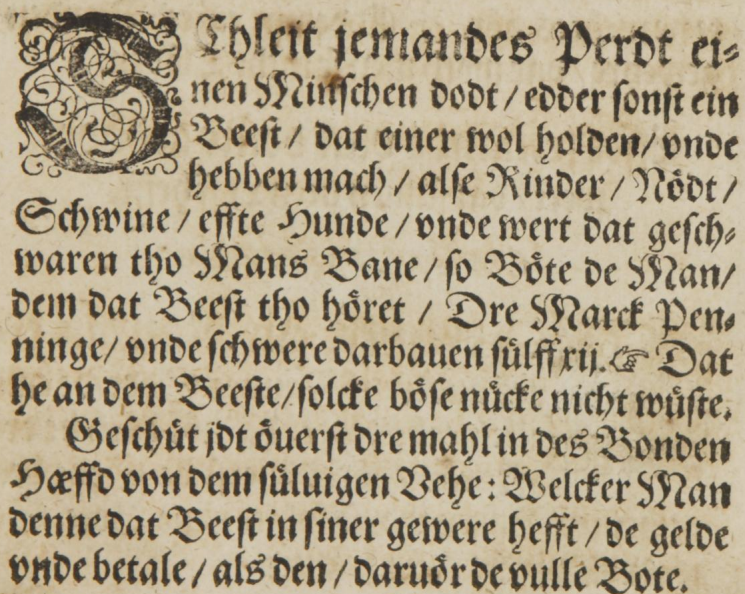 SChleit jemandes Perdt ei⸗
nen Minschen dodt / edder sonst ein
Beest / dat einer wol holden / vnde
hebben mach / alse Rinder / Nödt /
Schwine / effte Hunde / vnde wert dat gesch⸗
waren tho Mans Bane / so Böte de Man /
dem dat Beest tho höret / Dre Marck Pen⸗
ninge / vnde schwere darbauen sülff xij. ☞ Dat
he an dem Beeste / solcke böse nücke nicht wüste.
Geschüt jdt öuerst dre mahl in des Bonden
Hæffd von dem süluigen Vehe : Welcker Man
denne dat Beest in siner gewere hefft / de gelde
vnde betale / als den / daruör de vulle Bote.